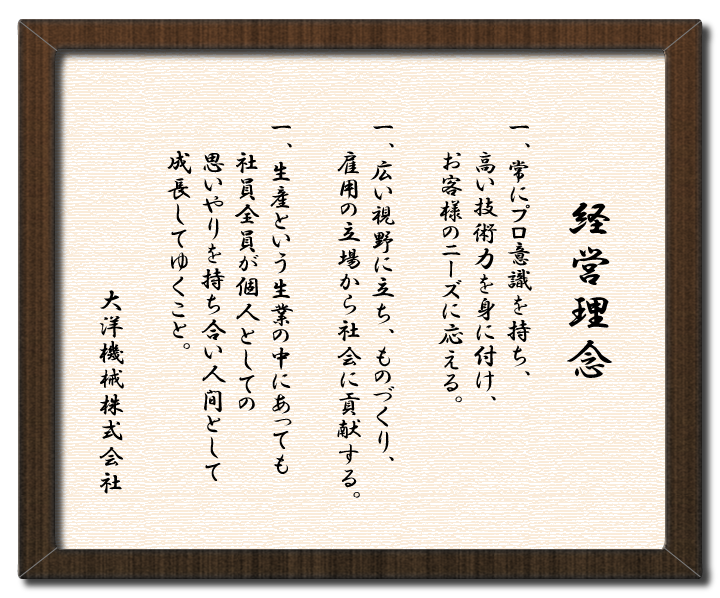 経営理念
一、常にプロ意識を持ち、
高い技術力を身に付け、
お客様のニーズに応える。
一、広い視野に立ち、ものづくり、
雇用の立場から社会に貢献する。
一、生産という生業の中にあっても
社員全員が個人としての
思いやりを持ち合い人间として
成長してゆくこと。
大洋機械株式会社